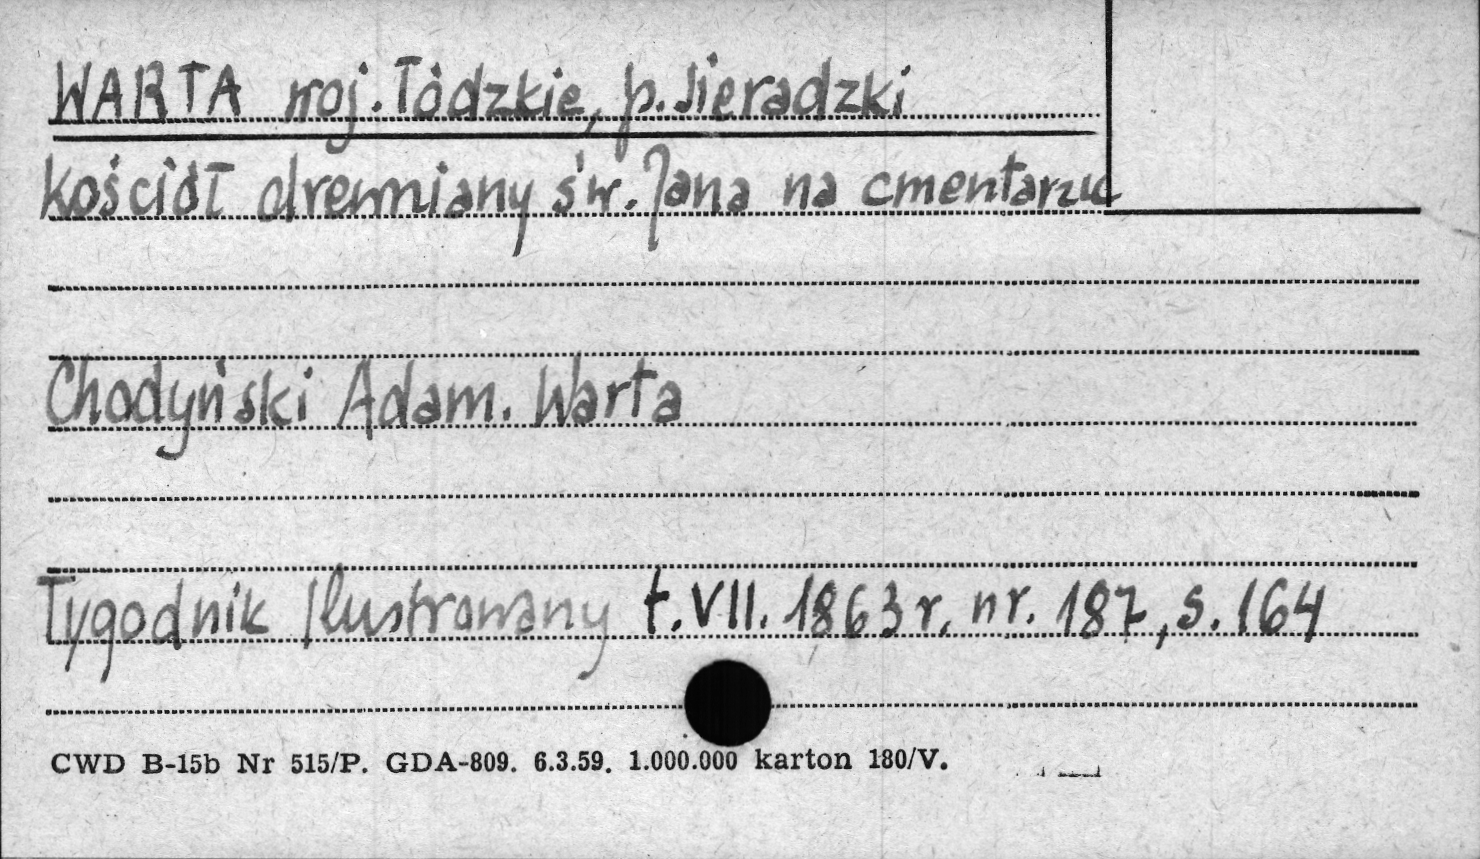 WARTA woj. łódzkie, p. sieradzki
kościół drewniany św. Jana na cmentarzu
Chodyński Adam. Warta
Tygodnik Ilustrowany t. VII. 1863 r. nr. 187, s. 164
CWD B-15b Nr 515/P. GDA-809. 6.3.59. 1.000.000 karton 180/V.